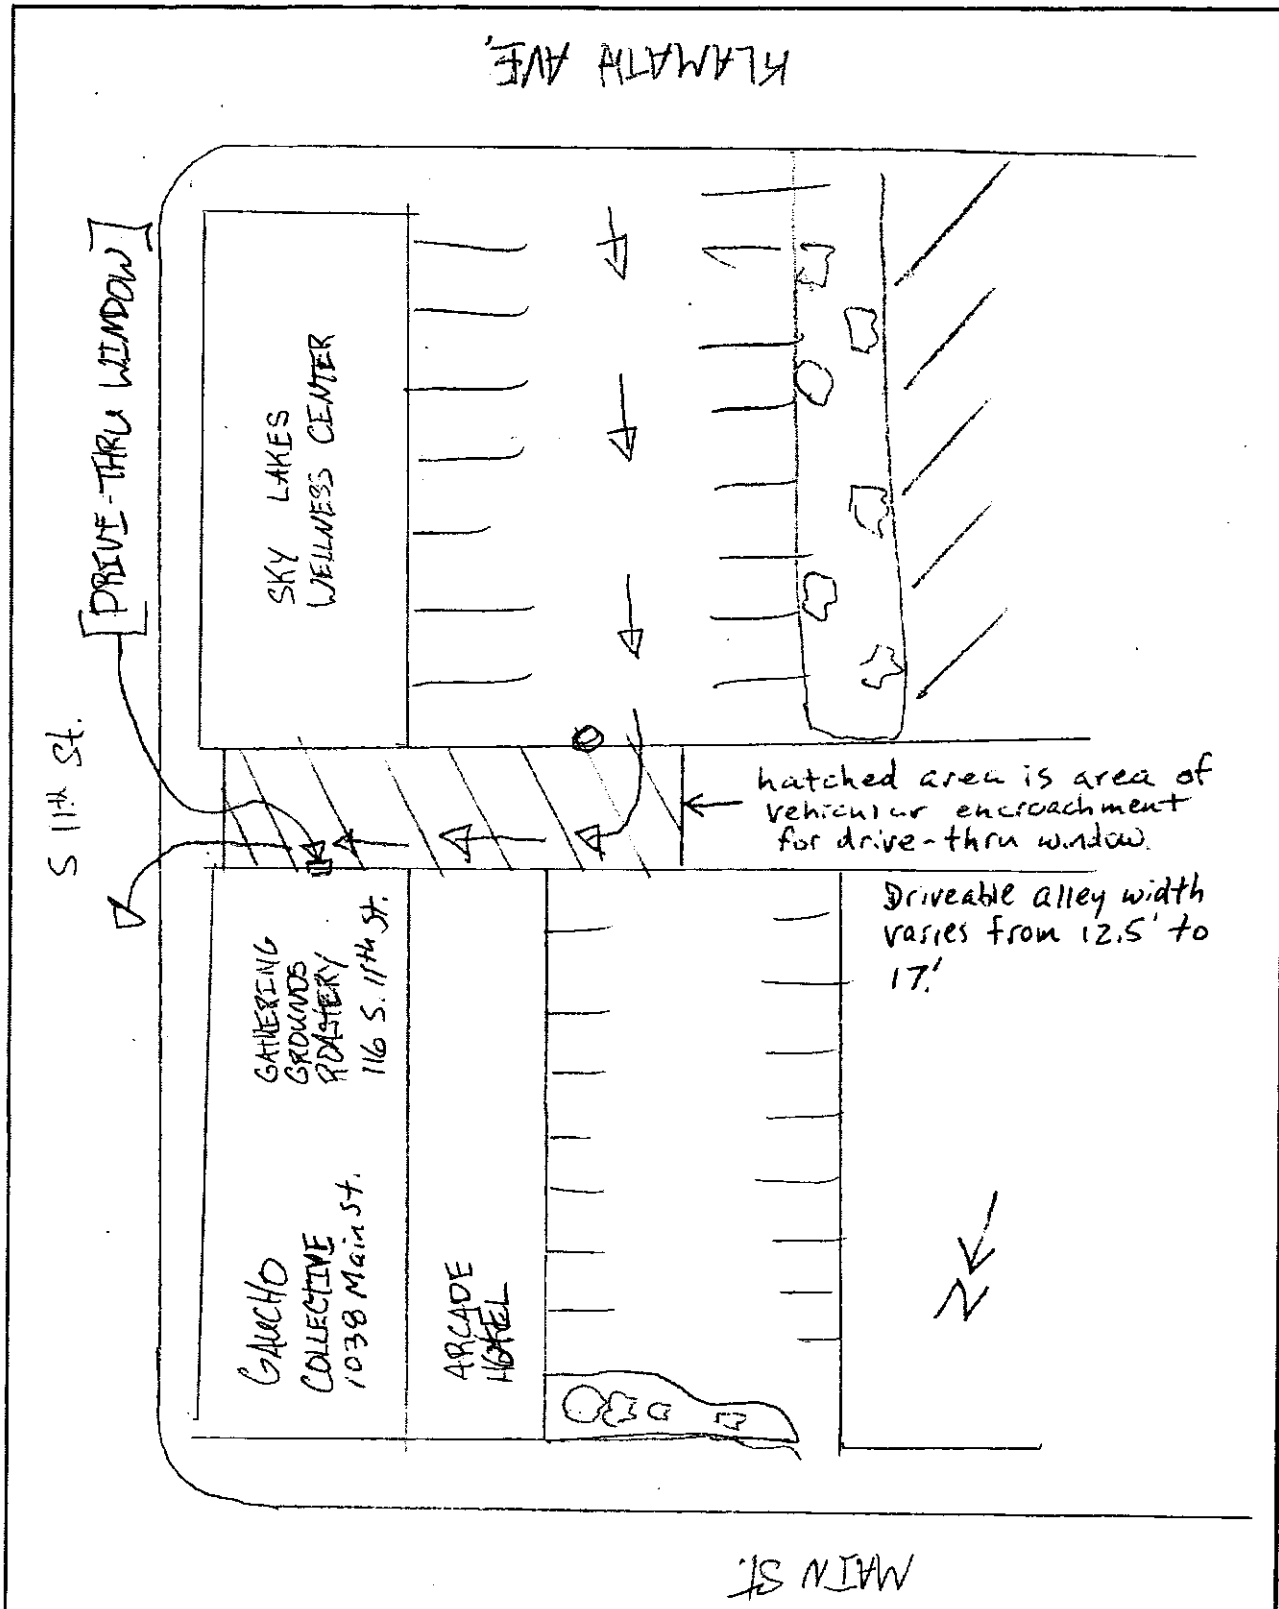 KLAMATH AVE.
[DRIVE-THRU WINDOW]
S 11th St.
SKY LAKES
WELLNESS CENTER
hatched area is area of
vehicular encroachment
for drive-thru window.
Driveable alley width
varies from 12.5' to
17.'
GATHERING
GROUNDS
ROASTERY
116 S. 11th St.
GAUCHO
COLLECTIVE
1038 Main St.
ARCADE
HOTEL
N
MAIN St.